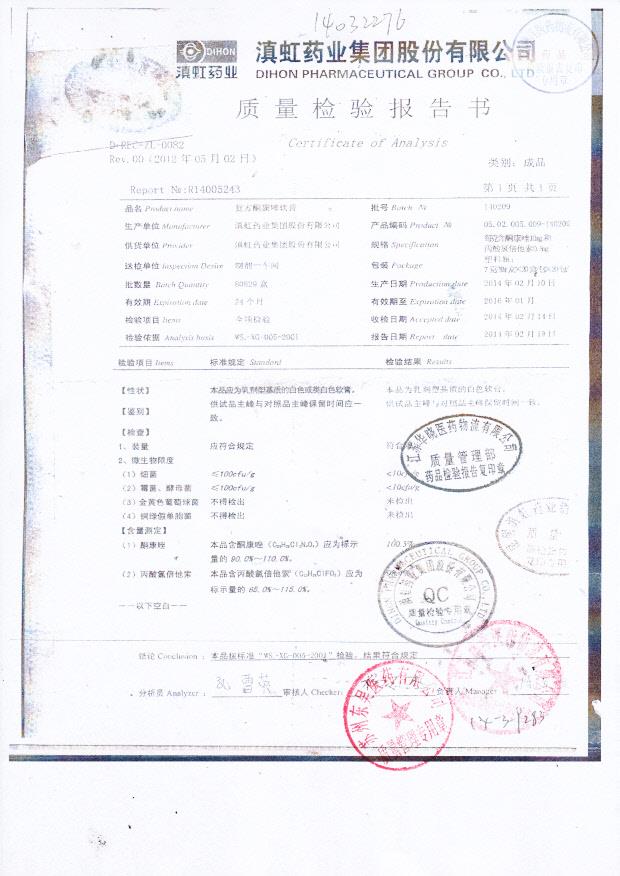 14032276
DIHON
滇虹药业
滇虹药业集团股份有限公司
DIHON PHARMACEUTICAL GROUP CO., LTD
质量检验报告书
Certificate of Analysis
D-REC-ZL-0082
Rev.00 (2012 年 05 月 02 日)
类别: 成品
Report №:R14005243
第 1 页 共 1 页
品名 Product name 复方酮康唑软膏 批号 Batch № 140209
生产单位 Manufacturer 滇虹药业集团股份有限公司 产品编码 Product № 05.02.005.009-140209
供货单位 Provider 滇虹药业集团股份有限公司 规格 Specification 每克含酮康唑10mg和
丙酸氯倍他索0.5mg
送检单位 Inspection Device 制剂一车间 包装 Package 塑料瓶:
批数量 Batch Quantity 80629 盒 生产日期 Production date 2014 年 02 月 10 日
有效期 Expiration date 24 个月 有效期至 Expiration date 2016 年 01 月
检验项目 Items 全项检验 收检日期 Accepted date 2014 年 02 月 14 日
检验依据 Analysis basis WS.-XG-005-2001 报告日期 Report date 2014 年 02 月 19 日
检验项目 Items 标准规定 Standard 检验结果 Results
【性状】 本品应为乳剂型基质的白色或类白色软膏。 本品为乳剂型基质的白色软膏。
【鉴别】 供试品主峰与对照品主峰保留时间应一 供试品主峰与对照品主峰保留时间一致。
致。
【检查】
1、装量 应符合规定 符合
2、微生物限度
(1) 细菌 ≤100cfu/g <10
(2) 霉菌、酵母菌 ≤100cfu/g <10cfu/g
(3) 金黄色葡萄球菌 不得检出 未检出
(4) 铜绿假单胞菌 不得检出 未检出
【含量测定】
(1) 酮康唑 本品含酮康唑 (C₂₆H₂₈Cl₂N₄O₄) 应为标示 100.3%
量的 90.0%~110.0%。
(2) 丙酸氯倍他索 本品含丙酸氯倍他索 (C₂₅H₃₂ClFO₅) 应为
标示量的 85.0%~115.0%。
——以下空白——
江苏华晓医药物流有限公司
质量管理部
药品检验报告复印章
DIHON PHARMACEUTICAL GROUP CO.,LTD
滇虹药业集团股份有限公司
QC
质量检验专用章
Quality Control
结论 Conclusion : 本品按标准 "WS.-XG-005-2001" 检验, 结果符合规定
分析员 Analyzer : 审核人 Checker: 负责人 Manager
14-3-9285